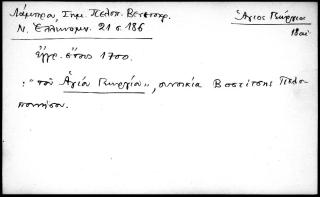 Λάμπρου, Σημ. Πελοπ. Βενετοκρ.
Ν. Ἑλληνομν. 21 σ. 186
Ἅγιος Γεώργιος
18 αἰ.
Ἔγγρ. ἔτους 1700.
: "τοῦ Ἁγίου Γεωργίου", συνοικία Βοστίτσης Πελο-
ποννήσου.